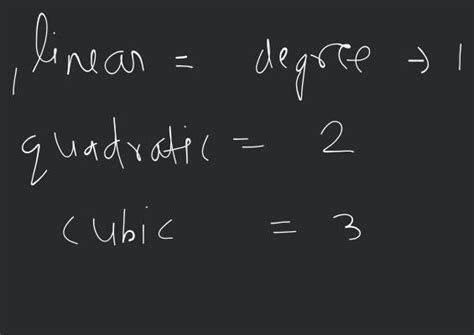 , linear = degree → 1
quadratic = 2
cubic = 3